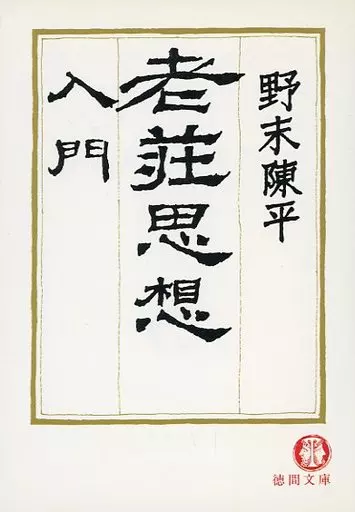 野末陳平
老荘思想
入門
徳間文庫